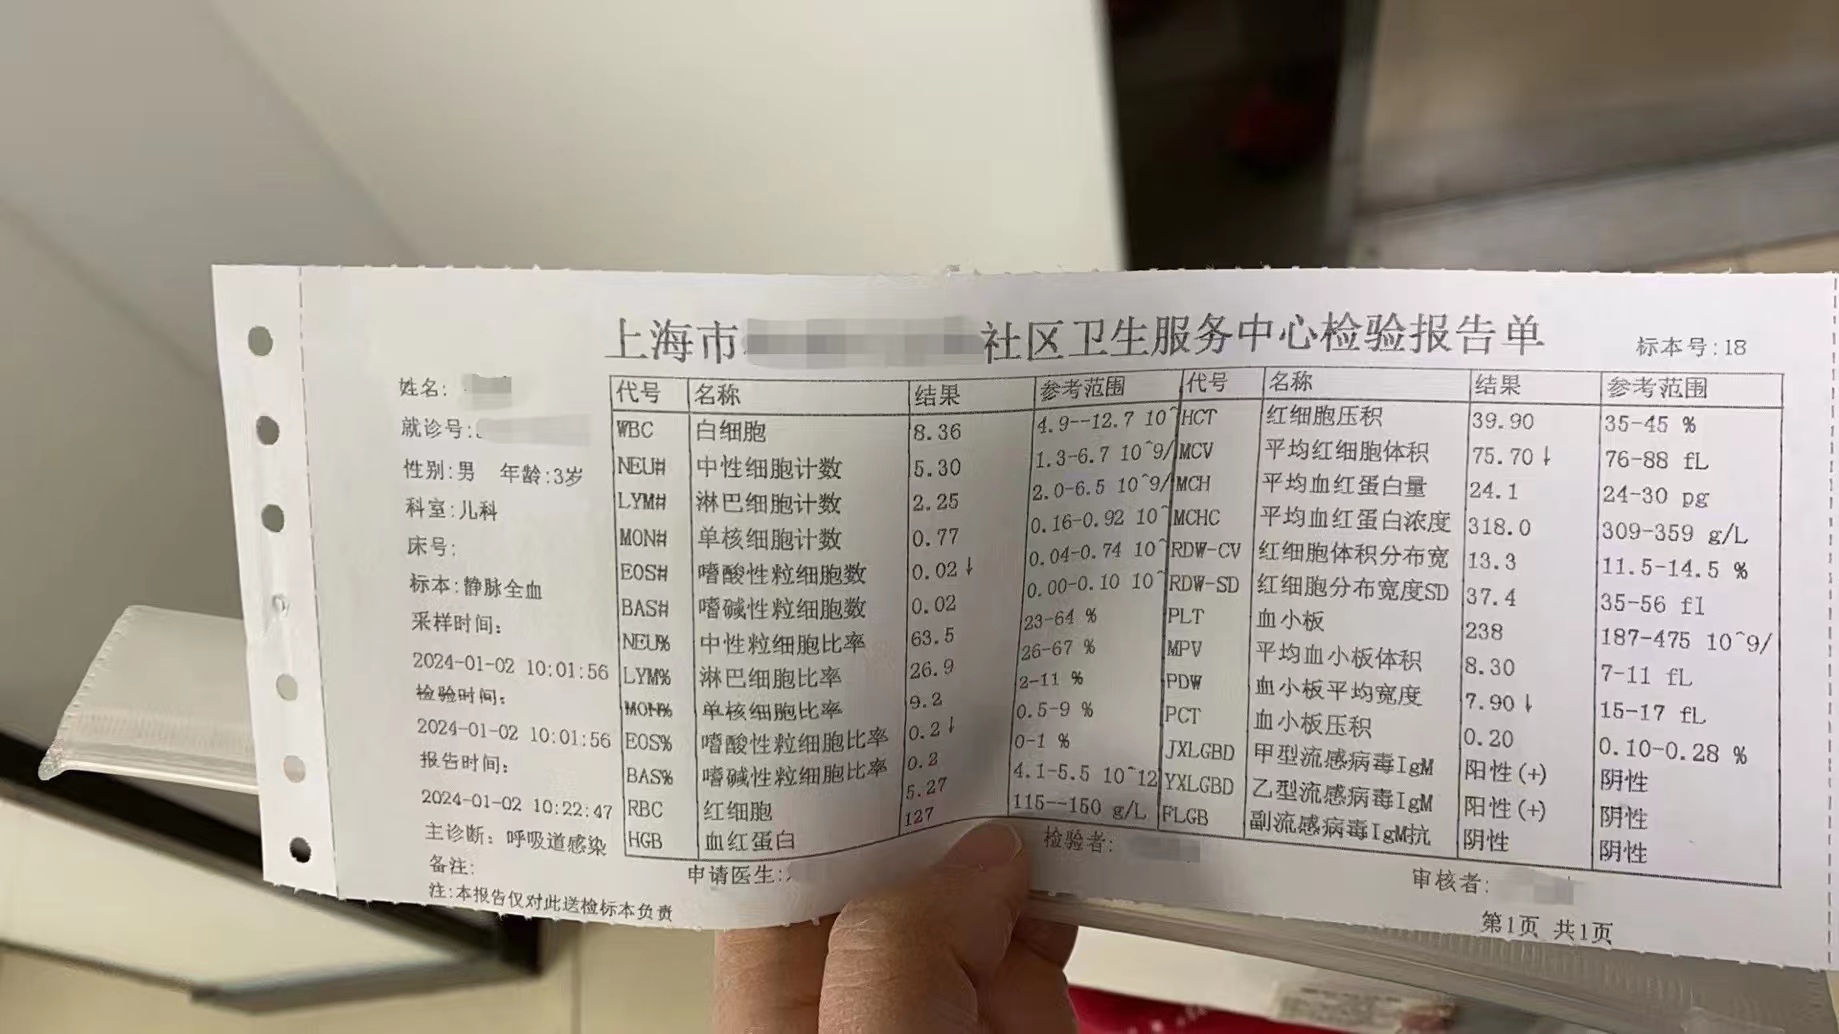 上海市 社区卫生服务中心检验报告单
标本号:18
姓名:
就诊号:
性别:男 年龄:3岁
科室:儿科
床号:
标本:静脉全血
采样时间:
2024-01-02 10:01:56
检验时间:
2024-01-02 10:01:56
报告时间:
2024-01-02 10:22:47
主诊断: 呼吸道感染
备注:
注:本报告仅对此送检标本负责
代号 名称 结果 参考范围
WBC 白细胞 8.36 4.9--12.7 10^
NEU# 中性细胞计数 5.30 1.3-6.7 10^9/
LYM# 淋巴细胞计数 2.25 2.0-6.5 10^9/
MON# 单核细胞计数 0.77 0.16-0.92 10^
EOS# 嗜酸性粒细胞数 0.02↓ 0.04-0.74 10^
BAS# 嗜碱性粒细胞数 0.02 0.00-0.10 10^
NEU% 中性粒细胞比率 63.5 23-64 %
LYM% 淋巴细胞比率 26.9 26-67 %
MON% 单核细胞比率 9.2 2-11 %
EOS% 嗜酸性粒细胞比率 0.2↓ 0.5-9 %
BAS% 嗜碱性粒细胞比率 0.2 0-1 %
RBC 红细胞 5.27 4.1-5.5 10^12
HGB 血红蛋白 127 115--150 g/L
代号 名称 结果 参考范围
HCT 红细胞压积 39.90 35-45 %
MCV 平均红细胞体积 75.70↓ 76-88 fL
MCH 平均血红蛋白量 24.1 24-30 pg
MCHC 平均血红蛋白浓度 318.0 309-359 g/L
RDW-CV 红细胞体积分布宽 13.3 11.5-14.5 %
RDW-SD 红细胞分布宽度SD 37.4 35-56 fl
PLT 血小板 238 187-475 10^9/
MPV 平均血小板体积 8.30 7-11 fL
PDW 血小板平均宽度 7.90↓ 15-17 fL
PCT 血小板压积 0.20 0.10-0.28 %
JXLGBD 甲型流感病毒IgM 阳性(+) 阴性
YXLGBD 乙型流感病毒IgM 阳性(+) 阴性
FLGB 副流感病毒IgM抗 阴性 阴性
申请医生:
检验者:
审核者:
第1页 共1页